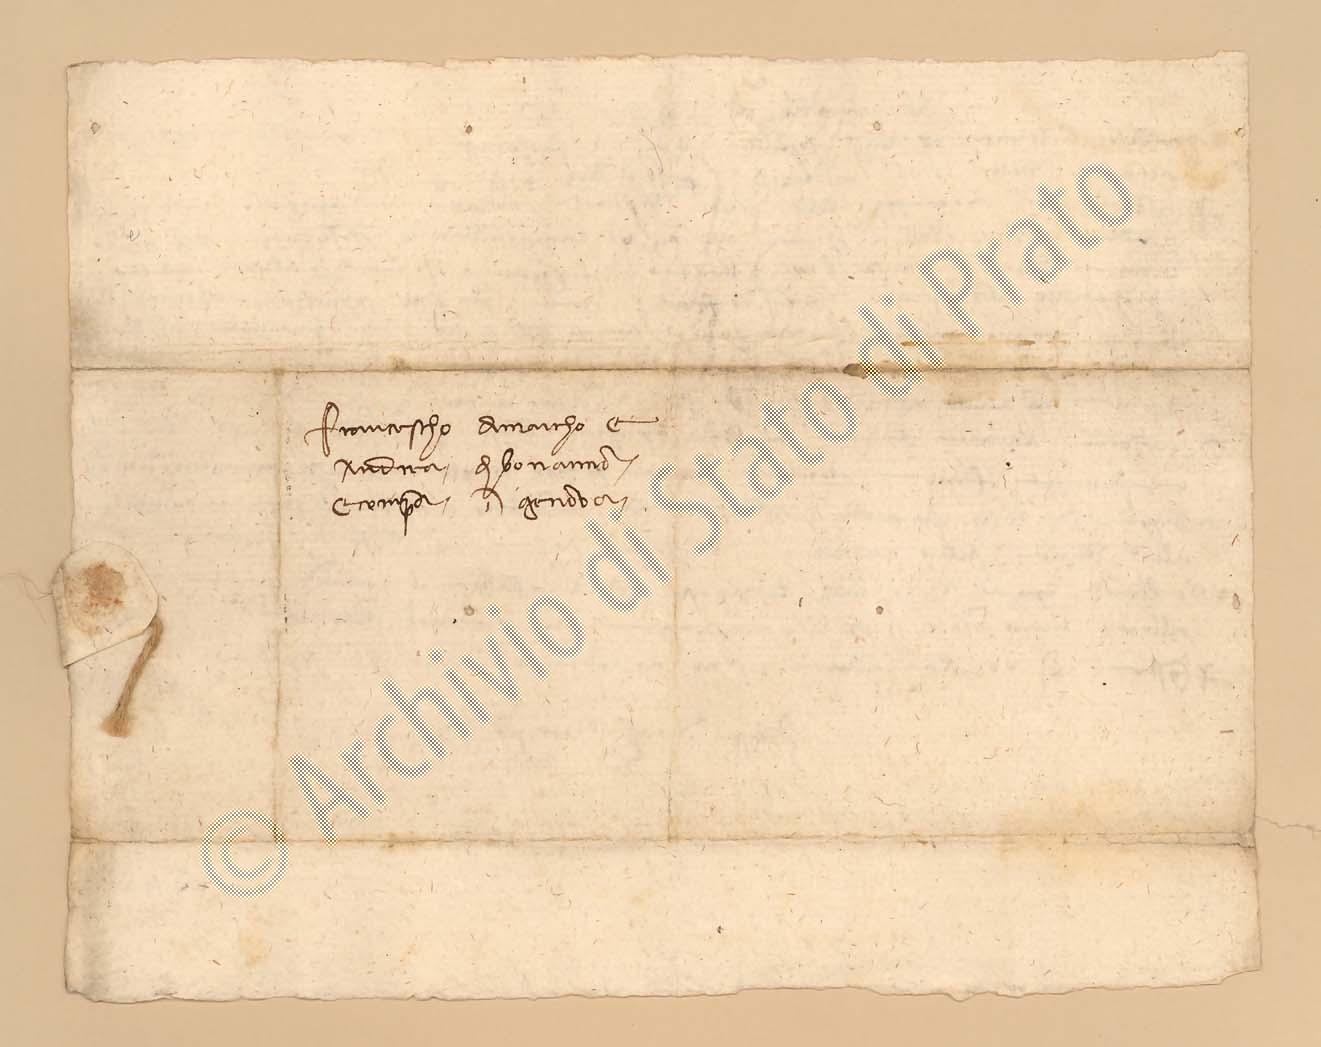 Franciescho di marcho e
Andrea di bonanno
e conpa in gienova
© Archivio di Stato di Prato